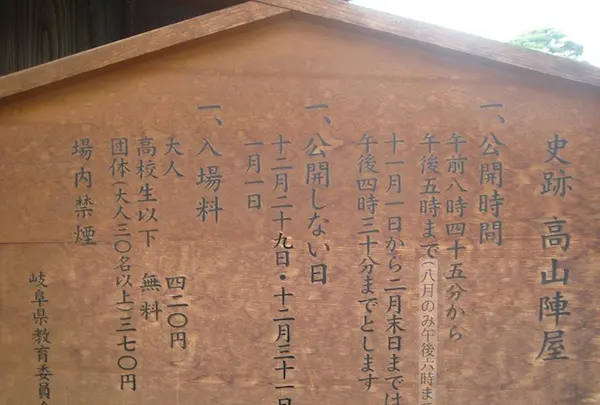 史跡 高山陣屋
一、公開時間
午前八時四十五分から
午後五時まで(八月のみ午後六時ま
十一月一日から二月末日までは
午後四時三十分までとします
一、公開しない日
十二月二十九日・十二月三十一日
一月一日
一、入場料
大人 四二〇円
高校生以下 無料
団体(大人三〇名以上)三七〇円
場内禁煙
岐阜県教育委員